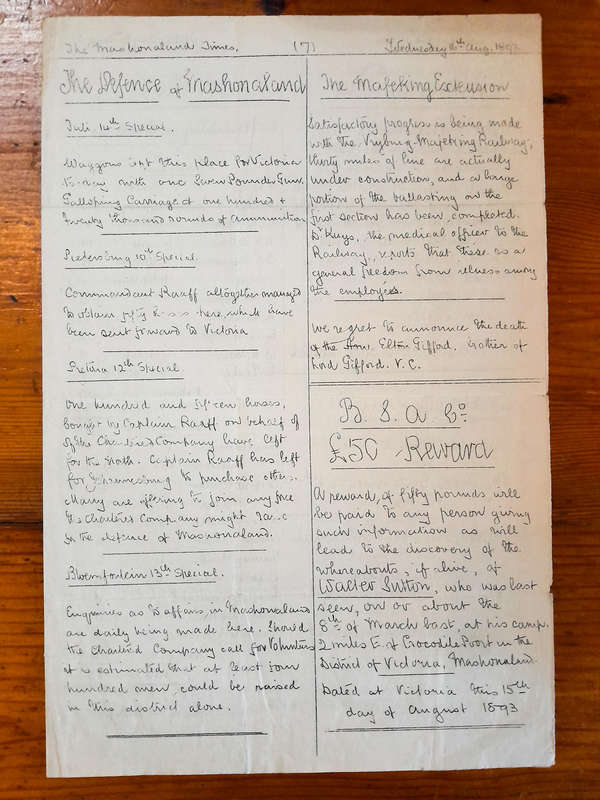 The Mashonaland Times.
(7)
Wednesday 16th Aug. 1893
The Defence of Mashonaland
Tuli 14th Special.
Waggons left this place for Victoria
to-day with one Seven Pounder Gun,
Galloping Carriage at one hundred &
twenty thousand rounds of ammunition
Pietersburg 10th Special.
Commandant Raaff altogether managed
to obtain fifty horses here, which have
been sent forward to Victoria
Pretoria 12th Special
One hundred and fifteen horses,
bought by Captain Raaff on behalf of
of the Chartered Company have left
for the North. Captain Raaff has left
for Johannesburg to purchase others.
Many are offering to join any force
the Chartered Company might raise
for the defence of Mashonaland.
Bloemfontein 13th Special.
Enquiries as to affairs, in Mashonaland
are daily being made here. Should
the Chartered Company call for Volunteers
it is estimated that at least four
hundred men, could be raised
in this district alone.
The Mafeking Extension
Satisfactory progress is being made
with the Vryburg-Mafeking Railway;
thirty miles of line are actually
under construction, and a large
portion of the ballasting on the
first section has been, completed.
Dr Kuys, the medical officer to the
Railway, reports that there is a
general freedom from illness among
the employees.
We regret to announce the death
of the Hon. Elton Gifford. brother of
Lord Gifford. V.C.
B. S. A Co.
£50 Reward
A reward, of fifty pounds will
be paid to any person giving
such information as will
lead to the discovery of the
whereabouts, if alive, of
Walter Sutton, who was last
seen, on or about the
8th of March last, at his camp.
2 miles E. of Crocodile Poort in the
District of Victoria, Mashonaland.
Dated at Victoria this 15th
day of August 1893